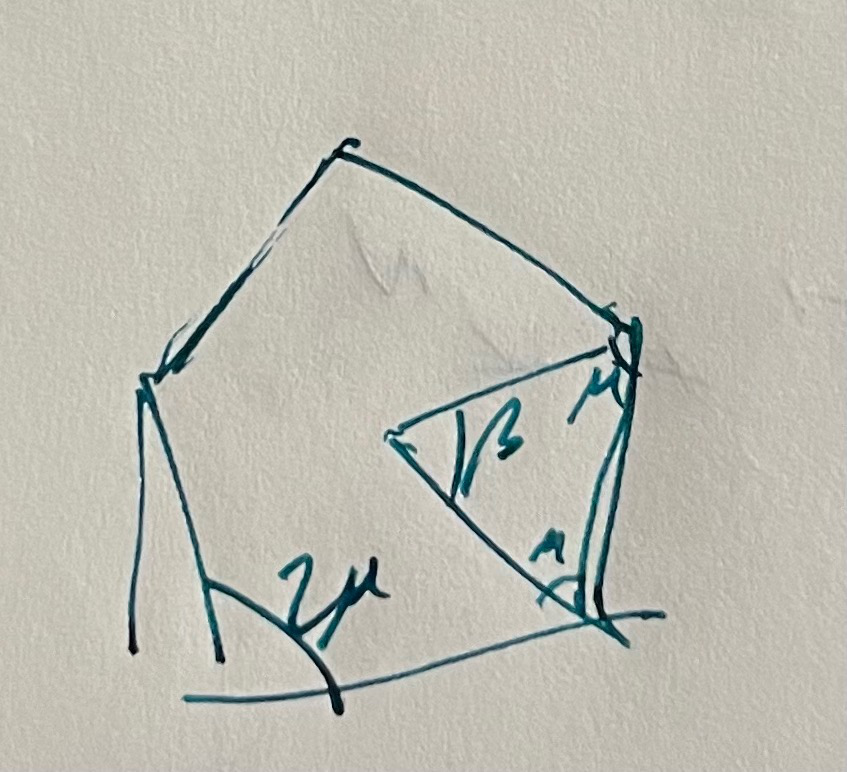 μ
β
μ
2μ